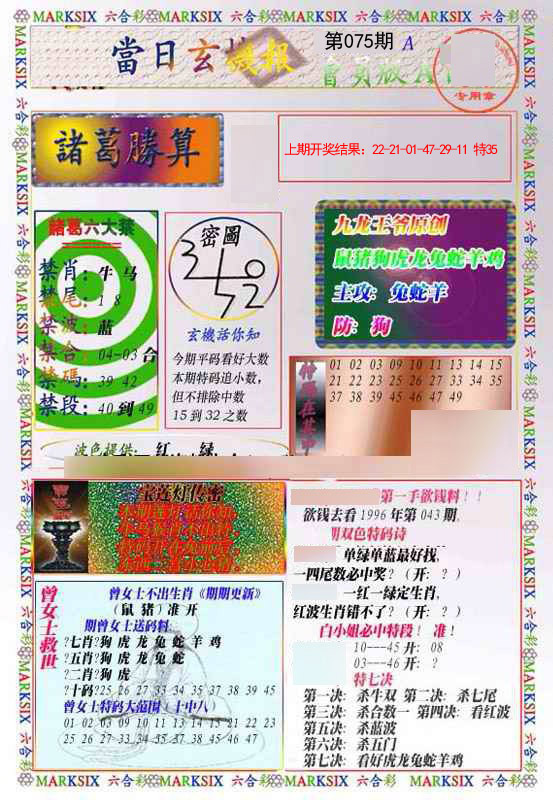 MARKSIX 六合彩 MARKSIX 六合彩 MARKSIX 六合彩 MARKSIX 六合彩 MARKSIX
當日玄機报
第075期 A
會員版A
专用章
諸葛勝算
上期开奖结果：22-21-01-47-29-11 特35
諸葛六大禁
禁肖：牛 马
禁尾：1 8
禁波：蓝
禁合：04-03 合
禁碼：39 42
禁段：40 到 49
密圖
玄機话你知
今期平码看好大数
本期特码追小数，
但不排除中数
15 到 32 之数
九龙王爷原创
鼠猪狗虎龙兔蛇羊鸡
主攻：兔蛇羊
防：狗
01 02 03 09 10 11 13 14 15
21 22 23 25 26 27 33 34 35
37 38 39 45 46 47 49
波色提供：红 绿
宝莲灯传密
曾女士救世
曾女士不出生肖《期期更新》
（鼠 猪）准 开
期曾女士送码料
?七肖?狗 虎 龙 兔 蛇 羊 鸡
?五肖?狗 虎 龙 兔 蛇
?二肖?狗 虎
?十码?25 26 27 33 34 35 37 38 39 45
曾女士特码大范围（十中八）
01 02 03 09 10 11 13 14 15 21 22 23
25 26 27 33 34 35 37 38 45 46 47
第一手欲钱料！！
欲钱去看 1996 年第 043 期,
期双色特码诗
单绿单蓝最好找,
一四尾数必中奖？（开：？）
一红一绿定生肖,
红波生肖错不了？（开：？）
白小姐必中特段！ 准！
10---45 开: 08
03---46 开: ?
特七决
第一决：杀牛双 第二决：杀七尾
第三决：杀合数一 第四决：看红波
第五决：杀蓝波
第六决：杀五门
第七决：看好虎龙兔蛇羊鸡
MARKSIX 六合彩 MARKSIX 六合彩 MARKSIX 六合彩 MARKSIX 六合彩 MARKSIX